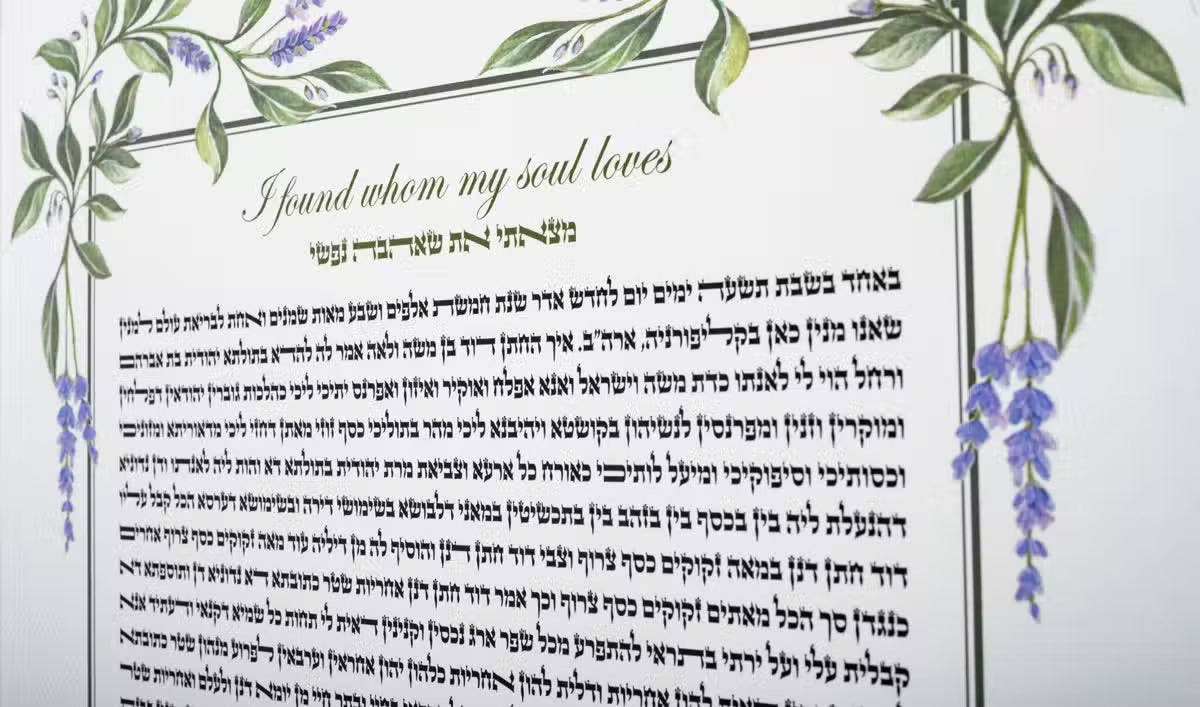 I found whom my soul loves
מצאתי את שאהבה נפשי
באחד בשבת תשעה ימים יום לחדש אדר שנת חמשת אלפים ושבע מאות שמנים ואחת לבריאת עולם למנין
שאנו מנין כאן בקליפורניה, ארה״ב. איך החתן דוד בן משה ולאה אמר לה להדא בתולתא יהודית בת אברהם
ורחל הוי לי לאנתו כדת משה וישראל ואנא אפלח ואוקיר ואיזון ואפרנס יתיכי ליכי כהלכות גוברין יהודאין דפלחין
ומוקרין וזנין ומפרנסין לנשיהון בקושטא ויהיבנא ליכי מהר בתוליכי כסף זוזי מאתן דחזי ליכי מדאוריתא ומזוניכי
וכסותיכי וסיפוקיכי ומיעל לותיכי כאורח כל ארעא וצביאת מרת יהודית בתולתא דא והות ליה לאנתו ודן נדוניא
דהנעלת ליה בין בכסף בין בזהב בין בתכשיטין במאני דלבושא בשימושי דירה ובשימושא דערסא הכל קבל עליו
דוד חתן דנן במאה זקוקים כסף צרוף וצבי דוד חתן דנן והוסיף לה מן דיליה עוד מאה זקוקים כסף צרוף אחרים
כנגדן סך הכל מאתים זקוקים כסף צרוף וכך אמר דוד חתן דנן אחריות שטר כתובתא דא נדוניא דן ותוספתא דא
קבלית עלי ועל ירתי בתראי להתפרע מכל שפר ארג נכסין וקנינין דאית לי תחות כל שמיא דקנאי ודעתיד אנא
אחריות ודלית להון אחריות כלהון יהון אחראין וערבאין לפרוע מנהון שטר כתובתא
מן יומא דנן ולעלם ואחריות שטר